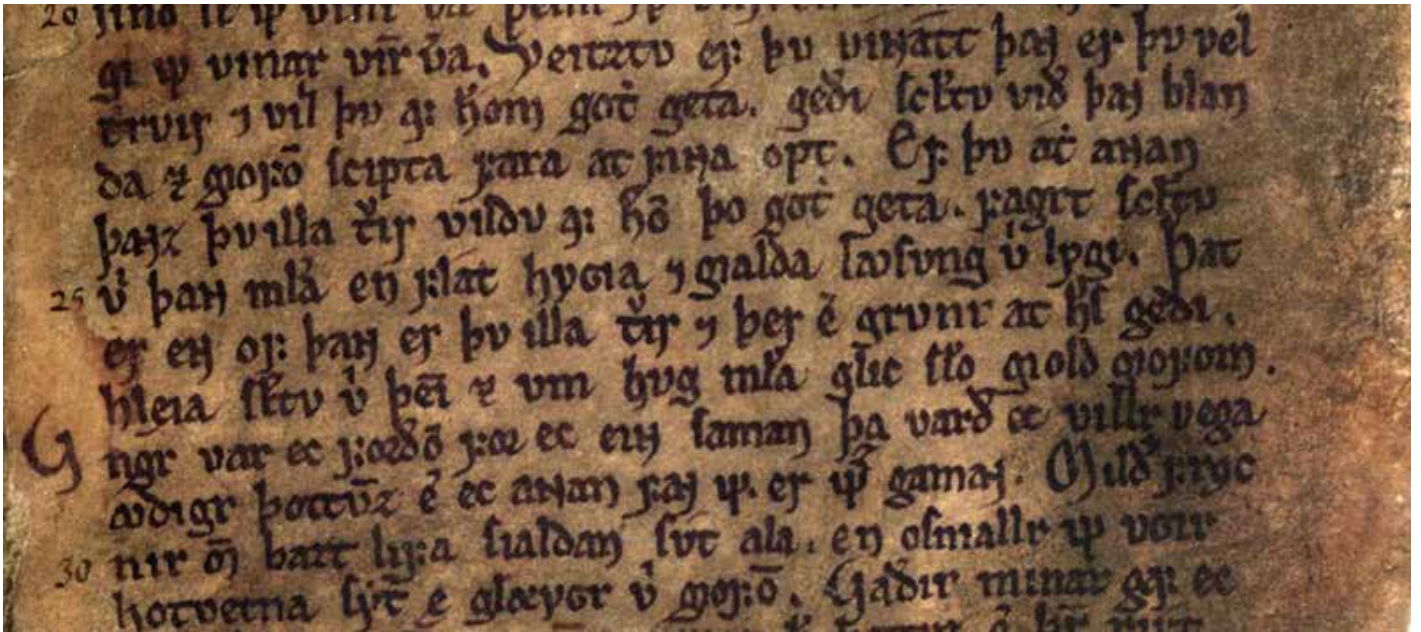 gi ᛘ vinar vinr v̄a. Veiztv ef þv vin átt þaɴ er þv vel
trvir ⁊ vill þv af ħom gót geta. geði scłtv við þaɴ blan
da ⁊ giofō scipta fara at fiɴa opt. Ef þv át aɴan
þaɴz þv illa t͛ir vildv af hō þo gót geta. fagrt scłtv
v͛ þaɴ mła en flat hyɢia ⁊ gialda lꜹsvng v͛ lygi. Þat
25 er eɴ of þaɴ er þv illa t͛ir ⁊ þer ē grvnr at ħs geði.
hlęia słtv v͛ þei ⁊ vm hvg mła glic sło giold giofom.
Ungr var ec forðō for ec eiɴ saman þa varð ec villr vega
ꜹðigr þottōz e͛ ec aɴan faɴ ᛘ. er ᛘ gaman. Mild͛ frǿc
30 nir m̄ bazt lifa sialdan svt ala. en osniallr ᛘ vɢir
hotvetna sýt͛ ę gløɢr v͛ giofō. Váðir minar gaf ec